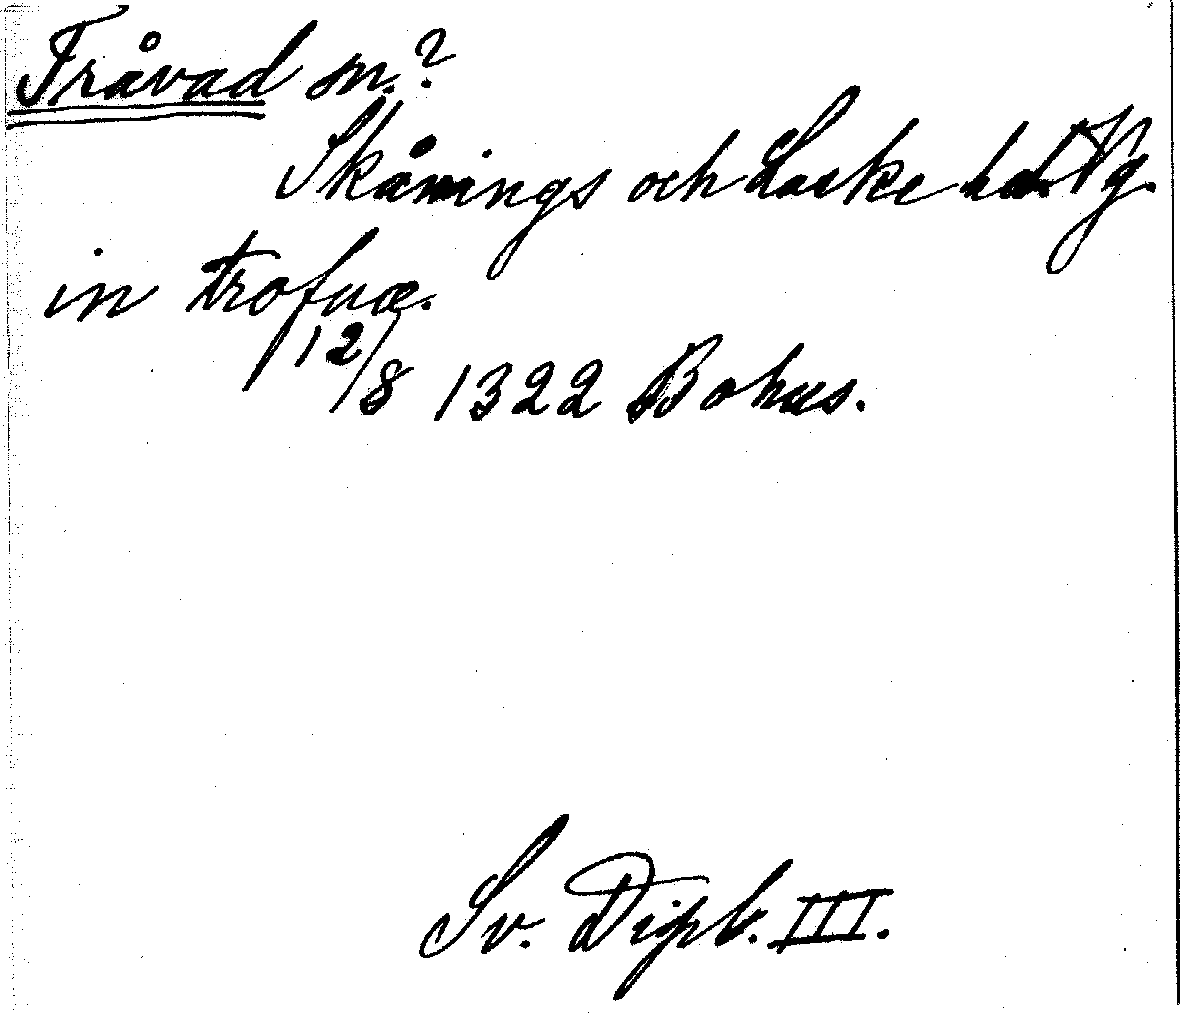 Tråvad sn.?
Skånings och Laske hd. Vg.
in trofuæ.
12/8 1322 Bohus.
Sv. Dipl. III.